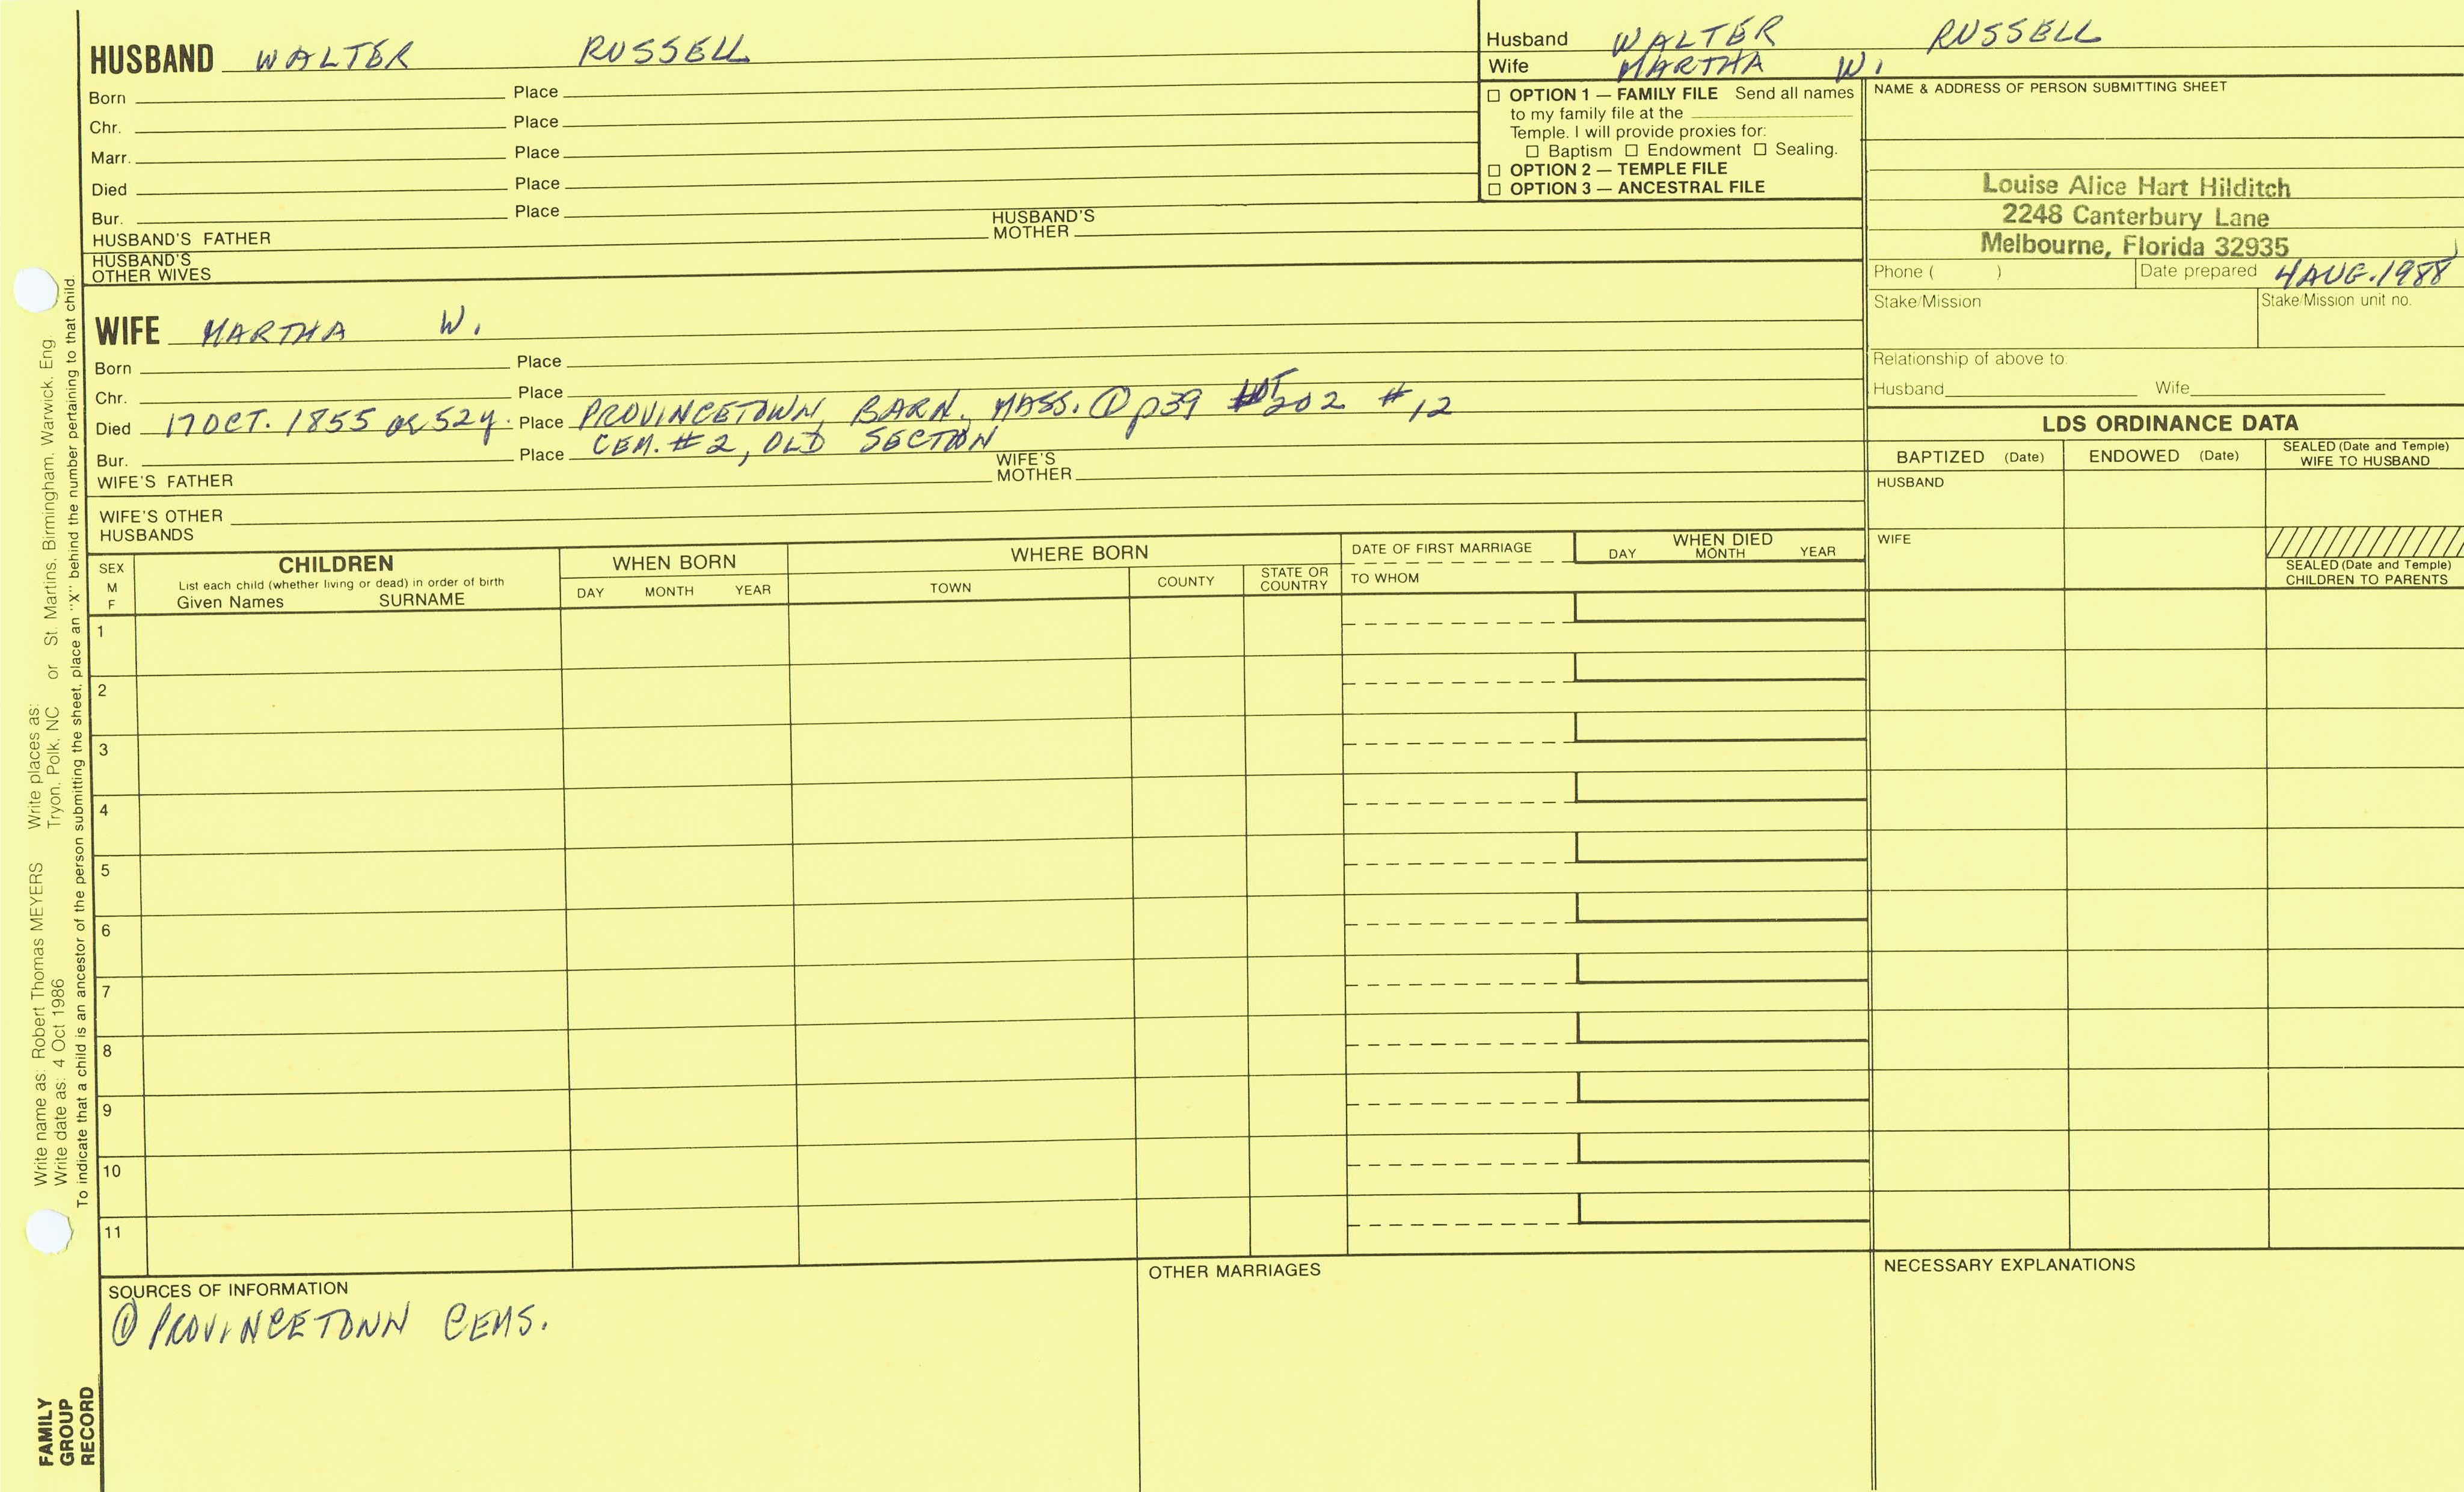 HUSBAND WALTER RUSSELL
Born Place
Chr. Place
Marr. Place
Died Place
Bur. Place
HUSBAND'S FATHER HUSBAND'S MOTHER
HUSBAND'S OTHER WIVES
WIFE MARTHA W.
Born Place
Chr. Place
Died 17 OCT. 1855 ae 52y. Place PROVINCETOWN, BARN. MASS. ① p39 LOT 202 #12
Bur. Place CEM. #2, OLD SECTION
WIFE'S FATHER WIFE'S MOTHER
WIFE'S OTHER HUSBANDS
Husband WALTER RUSSELL
Wife MARTHA W.
☐ OPTION 1 — FAMILY FILE Send all names
to my family file at the
Temple. I will provide proxies for:
☐ Baptism ☐ Endowment ☐ Sealing.
☐ OPTION 2 — TEMPLE FILE
☐ OPTION 3 — ANCESTRAL FILE
NAME & ADDRESS OF PERSON SUBMITTING SHEET
Louise Alice Hart Hilditch
2248 Canterbury Lane
Melbourne, Florida 32935
Phone ( ) Date prepared 4 AUG. 1988
Stake/Mission Stake/Mission unit no.
Relationship of above to:
Husband Wife
LDS ORDINANCE DATA
BAPTIZED (Date) ENDOWED (Date) SEALED (Date and Temple) WIFE TO HUSBAND
HUSBAND
WIFE
SEALED (Date and Temple)
CHILDREN TO PARENTS
SEX M F
CHILDREN
List each child (whether living or dead) in order of birth
Given Names SURNAME
WHEN BORN
DAY MONTH YEAR
WHERE BORN
TOWN COUNTY STATE OR COUNTRY
DATE OF FIRST MARRIAGE
TO WHOM
WHEN DIED
DAY MONTH YEAR
1
2
3
4
5
6
7
8
9
10
11
SOURCES OF INFORMATION
① PROVINCETOWN CEMS.
OTHER MARRIAGES
NECESSARY EXPLANATIONS
Write name as: Robert Thomas MEYERS Write places as:
Write date as: 4 Oct 1986 Tryon, Polk, NC or St. Martins, Birmingham, Warwick, Eng
To indicate that a child is an ancestor of the person submitting the sheet, place an "X" behind the number pertaining to that child.
FAMILY
GROUP
RECORD